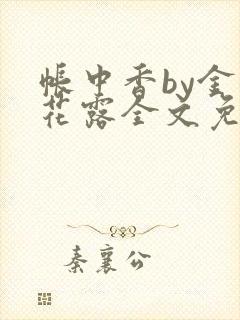 帐中香by金
花露全文免
秦襄公